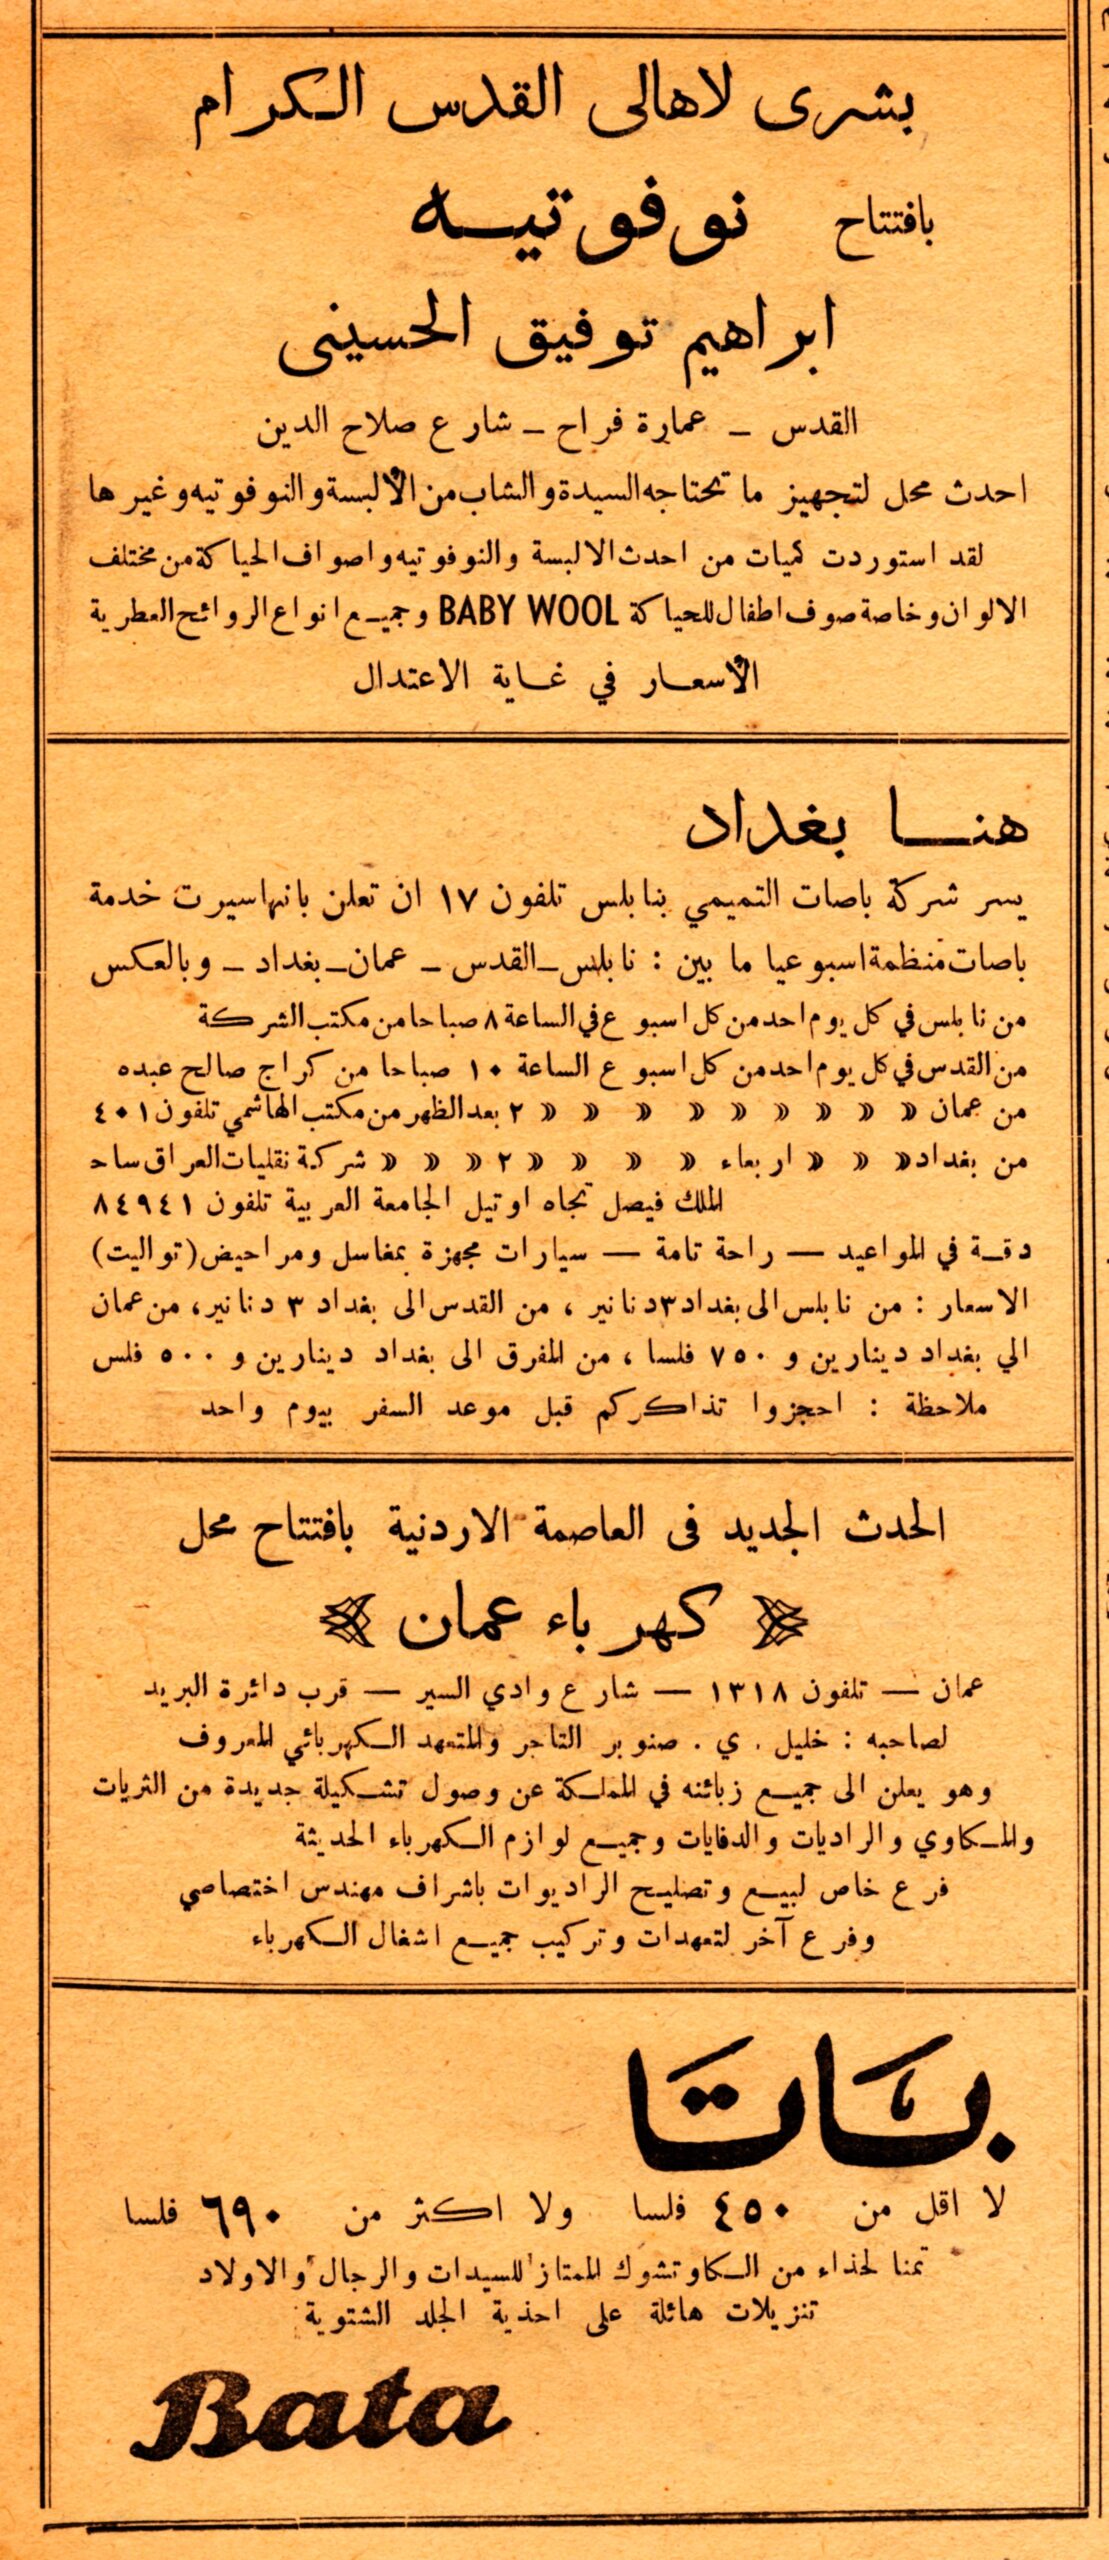 بشرى لاهالى القدس الكرام
بافتتاح نوفوتيه
ابراهيم توفيق الحسينى
القدس ــ عمارة فراح ــ شارع صلاح الدين
احدث محل لتجهيز ما تحتاجه السيدة والشاب من الألبسة والنوفوتيه وغيرها
لقد استوردت كميات من احدث الالبسة والنوفوتيه واصواف الحياكة من مختلف
الالوان وخاصة صوف اطفال للحياكة BABY WOOL وجميع انواع الروائح العطرية
الأسعار في غاية الاعتدال
هنا بغداد
يسر شركة باصات التميمي بنابلس تلفون ١٧ ان تعلن بانها سيرت خدمة
باصات منظمة اسبوعيا ما بين : نابلس ــ القدس ــ عمان ــ بغداد ــ وبالعكس
من نابلس في كل يوم احد من كل اسبوع في الساعة ٨ صباحا من مكتب الشركة
من القدس في كل يوم احد من كل اسبوع الساعة ١٠ صباحا من كراج صالح عبده
من عمان » » » » » » » » » ٢ بعد الظهر من مكتب الهاشمي تلفون ٤٠١
من بغداد » » » اربعاء » » » » ٢ » » » شركة نقليات العراق ساحـ
الملك فيصل تجاه اوتيل الجامعة العربية تلفون ٨٤٩٤١
دقة في المواعيد — راحة تامة — سيارات مجهزة بمغاسل ومراحيض (تواليت)
الاسعار : من نابلس الى بغداد ٣ دنانير ، من القدس الى بغداد ٣ دنانير ، من عمان
الي بغداد دينارين و ٧٥٠ فلسا ، من المفرق الى بغداد دينارين و ٥٠٠ فلس
ملاحظة : احجزوا تذاكركم قبل موعد السفر بيوم واحد
الحدث الجديد فى العاصمة الاردنية بافتتاح محل
كهرباء عمان
عمان — تلفون ١٣١٨ — شارع وادي السير — قرب دائرة البريد
لصاحبه : خليل . ي . صنوبر التاجر والمتعهد الكهربائي المعروف
وهو يعلن الى جميع زبائنه في المملكة عن وصول تشكيلة جديدة من الثريات
والمكاوي والراديات والدفايات وجميع لوازم الكهرباء الحديثة
فرع خاص لبيع وتصليح الراديوات باشراف مهندس اختصاصي
وفرع آخر لتعهدات وتركيب جميع اشغال الكهرباء
بَاتَا
لا اقل من ٤٥٠ فلسا ولا اكثر من ٦٩٠ فلسا
ثمنا لحذاء من الكاوتشوك الممتاز للسيدات والرجال والاولاد
تنزيلات هائلة على احذية الجلد الشتوية
Bata